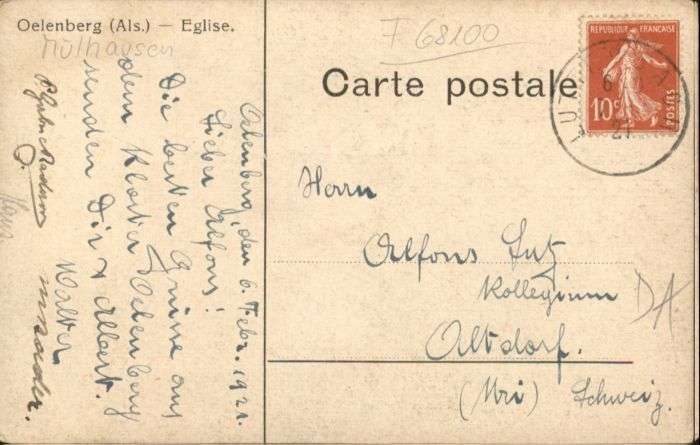 Oelenberg (Als.) — Eglise.
Mülhausen
F 68100
Carte postale
RÉPUBLIQUE FRANÇAISE
10c
POSTES
LUT
6
21
Oelenberg, den 6. Febr. 1921.
Lieber Alfons!
Die besten Grüsse aus
dem Kloster Oelenberg
senden Dir & Albert.
Walter
Herrn
Alfons Lutz
Kollegium
Altdorf.
(Uri) Schweiz.
DA